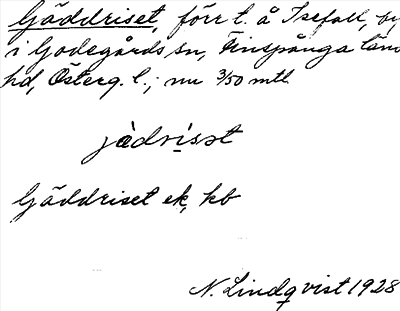 Gäddriset, förr l. å Isefall, by
i Godegårds sn, Finspånga läns
hd, Österg. l.; nu 3/50 mtl
jädrisət
Gäddriset ek, kb
N. Lindqvist 1928